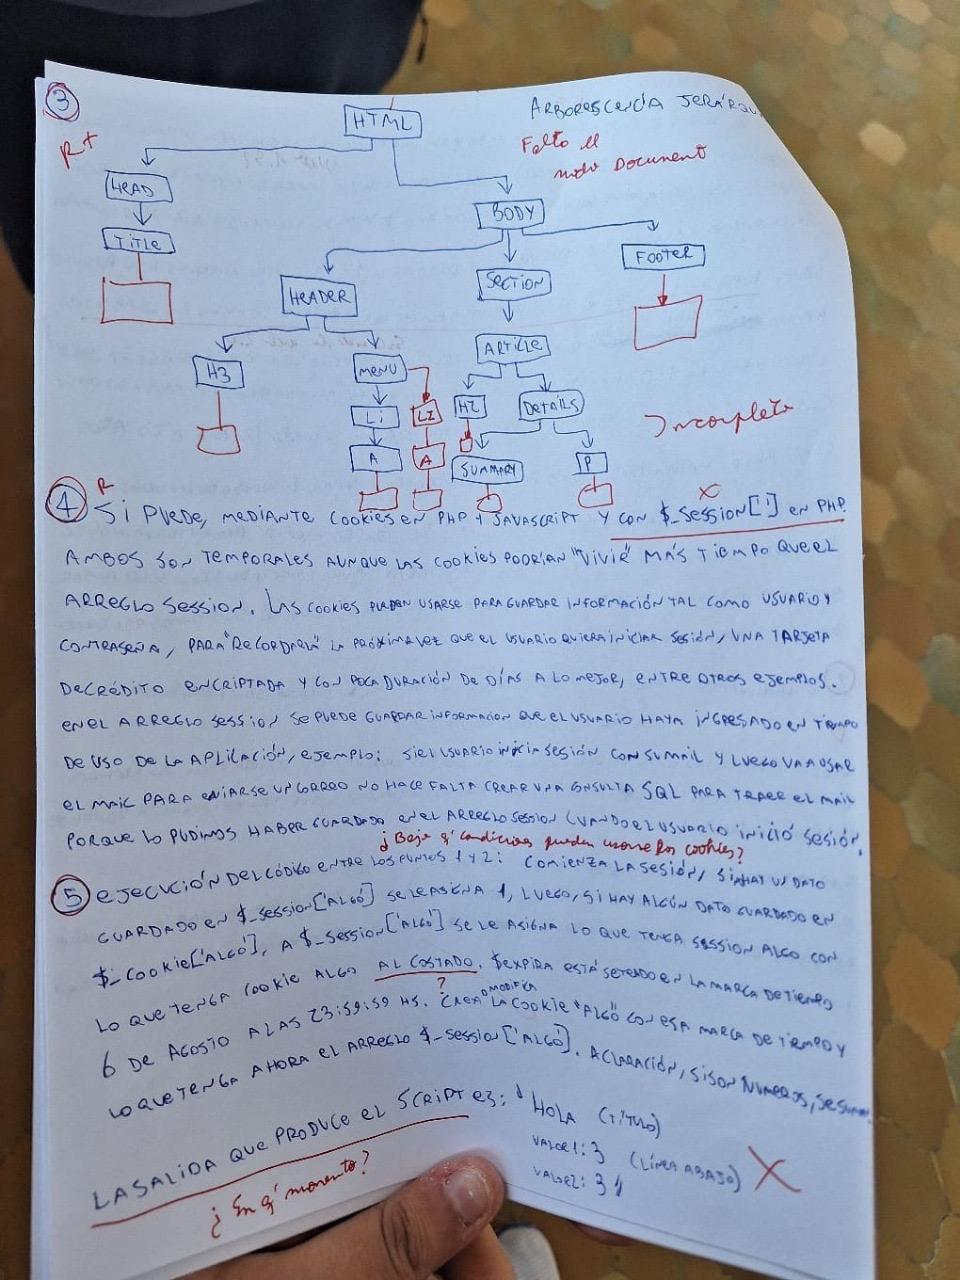 3
ARBORESCENCIA JERÁRQU
R+
HTML
Falto el
nodo Document
HEAD
BODY
TITLE
FOOTER
HEADER
SECTION
ARTICLE
H3
MENU
LI
LI
H2
DETAILS
Incompleto
A
A
SUMMARY
P
R
4 SI PUEDE, MEDIANTE COOKIES EN PHP Y JAVASCRIPT Y CON $_SESSION[''] EN PHP.
X
AMBOS SON TEMPORALES AUNQUE LAS COOKIES PODRÍAN "VIVIR" MÁS TIEMPO QUE EL
ARREGLO SESSION. LAS COOKIES PUEDEN USARSE PARA GUARDAR INFORMACIÓN TAL COMO USUARIO Y
CONTRASEÑA, PARA "RECORDARLA" LA PRÓXIMA VEZ QUE EL USUARIO QUIERA INICIAR SESIÓN, UNA TARJETA
DE CRÉDITO ENCRIPTADA Y CON POCA DURACIÓN DE DÍAS A LO MEJOR, ENTRE OTROS EJEMPLOS.
EN EL ARREGLO SESSION SE PUEDE GUARDAR INFORMACION QUE EL USUARIO HAYA INGRESADO EN TIEMPO
DE USO DE LA APLICACIÓN, EJEMPLO: SI EL USUARIO INICIA SESIÓN CON SU MAIL Y LUEGO VA A USAR
EL MAIL PARA ENVIARSE UN CORREO NO HACE FALTA CREAR UNA CONSULTA SQL PARA TRAER EL MAIL
PORQUE LO PUDIMOS HABER GUARDADO EN EL ARREGLO SESSION CUANDO EL USUARIO INICIÓ SESIÓN.
¿Bajo q' condiciones pueden usarse las cookies?
5 EJECUCIÓN DEL CÓDIGO ENTRE LOS PUNTOS 1 Y 2: COMIENZA LA SESIÓN, SI HAY UN DATO
GUARDADO EN $_SESSION['ALGO'] SE LE ASIGNA 1, LUEGO, SI HAY ALGÚN DATO GUARDADO EN
$_COOKIE['ALGO'], A $_SESSION['ALGO'] SE LE ASIGNA LO QUE TENGA SESSION ALGO CON
LO QUE TENGA COOKIE ALGO AL COSTADO. $EXPIRA ESTÁ SETEADO EN LA MARCA DE TIEMPO
?
6 DE AGOSTO A LAS 23:59:59 HS. CREA O MODIFICA LA COOKIE "ALGO" CON ESA MARCA DE TIEMPO Y
LO QUE TENGA AHORA EL ARREGLO $_SESSION['ALGO']. ACLARACIÓN, SI SON NÚMEROS, SE SUMAN.
LA SALIDA QUE PRODUCE EL SCRIPT ES: HOLA (TÍTULO)
VALOR1: 3 (LÍNEA ABAJO)
VALOR2: 31
X
¿En q' momento?